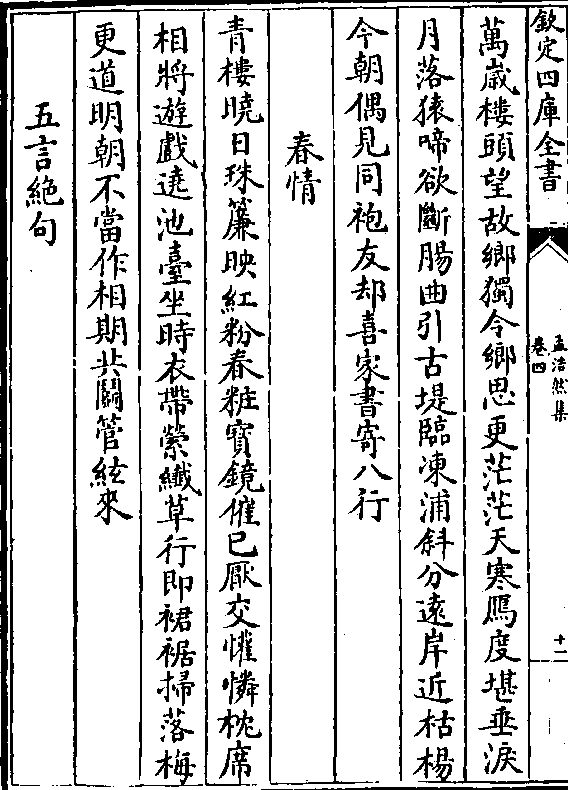 欽定四庫全書
孟浩然集
卷四
十二
萬嵗樓頭望故鄉獨令鄉思更茫茫天寒鴈度堪垂淚
月落猿啼欲斷腸曲引古堤臨凍浦斜分遠岸近枯楊
今朝偶見同袍友却喜家書寄八行
春情
青樓曉日珠簾映紅粉春粧寶鏡催已厭交懽憐枕席
相將遊戲遶池臺坐時衣帶縈纖草行即裙裾掃落梅
更道明朝不當作相期共鬬管絃來
五言絶句